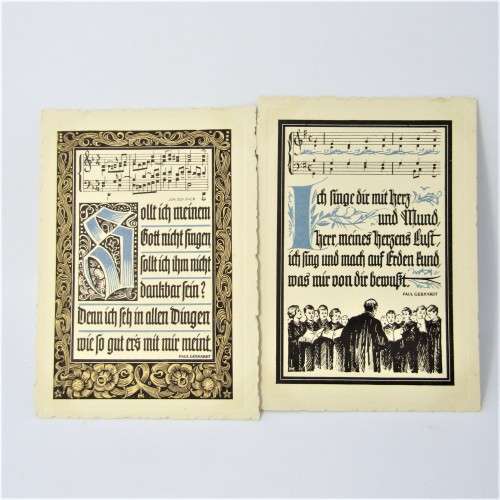 Sollt ich meinem
Gott nicht singen
sollt ich ihm nicht
dankbar sein?
Denn ich seh in allen Dingen
wie so gut er's mit mir meint.
PAUL GERHARDT
Ich singe dir mit Herz
und Mund,
Herr meines Herzens Lust,
ich sing und mach auf Erden kund
was mir von dir bewußt.
PAUL GERHARDT